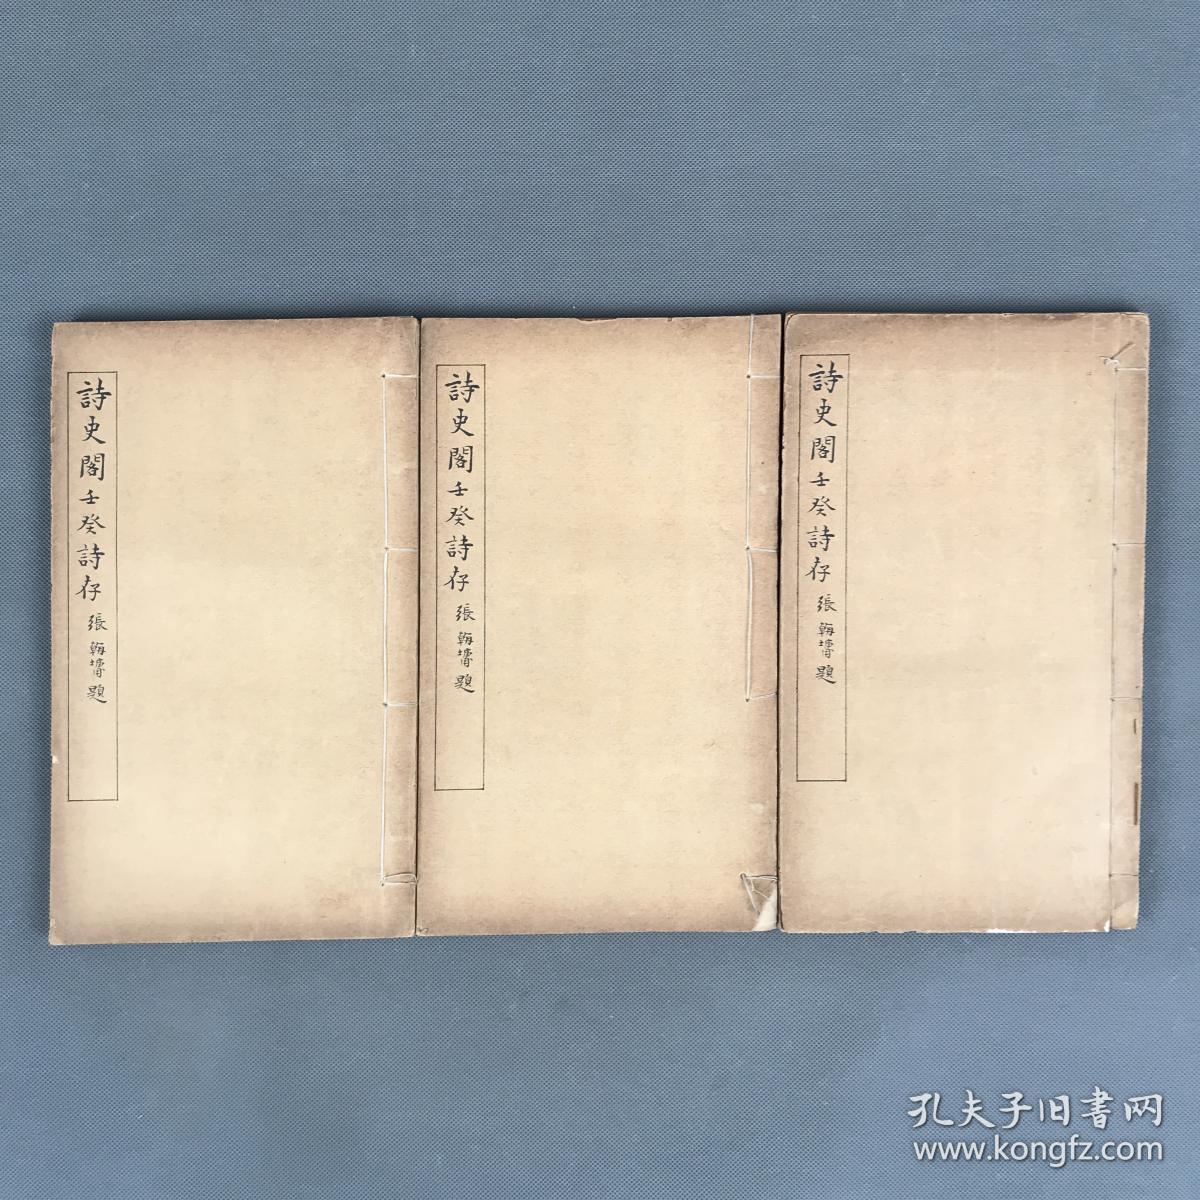 詩史閣壬癸詩存 張海墉題
詩史閣壬癸詩存 張海墉題
詩史閣壬癸詩存 張海墉題
孔夫子旧書网
www.kongfz.com